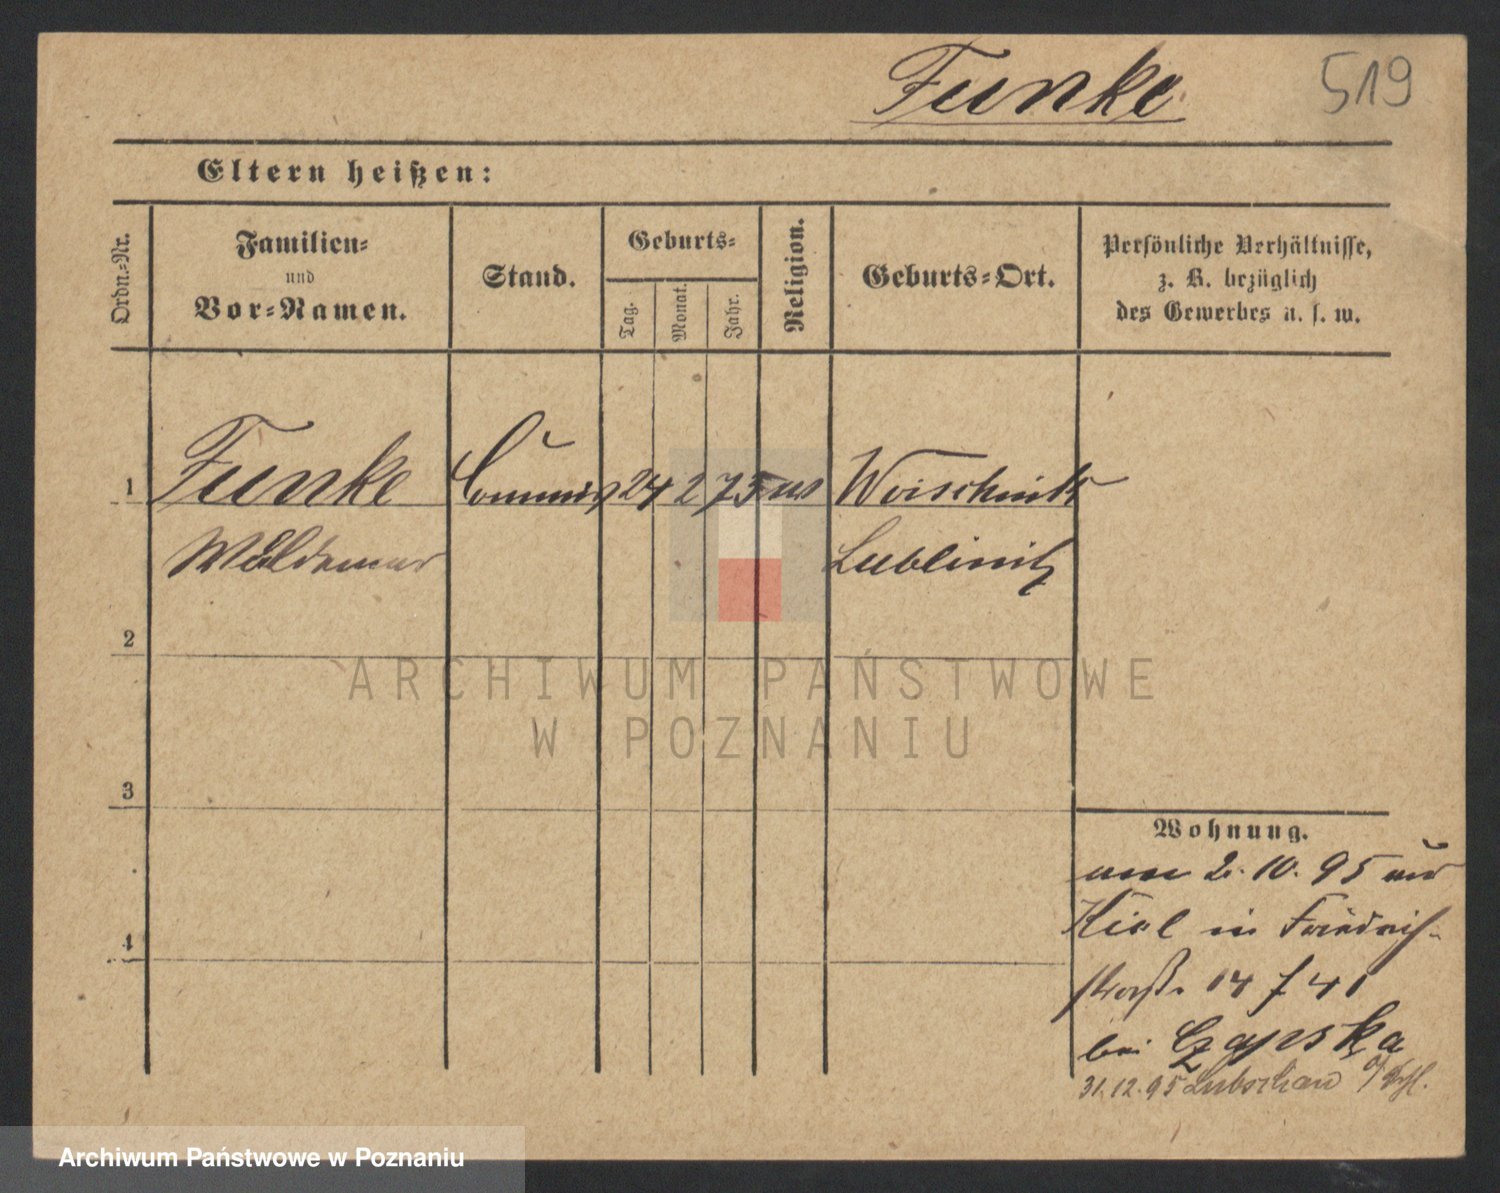 Funke
519
Eltern heißen:
Ordn.-Nr.
Familien-
und
Vor-Namen.
Stand.
Geburts-
Tag.
Monat.
Jahr.
Religion.
Geburts-Ort.
Persönliche Verhältnisse,
z. B. bezüglich
des Gewerbes u. s. w.
1 Funke Commis 24 2 73 Woischnik
Waldemar Lublinitz
2
ARCHIWUM PAŃSTWOWE
W POZNANIU
3
Wohnung.
am 2. 10. 95 aus
Kiel in Friedrich-
straße 14 41
bei Czapska
4
31.12.95 Lubschau
Archiwum Państwowe w Poznaniu